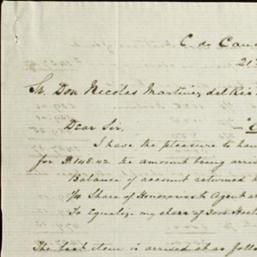 C. de Cau
21
Sr. Don Nicolas Martinez del Rio
Dear Sir,
I have the pleasure to han
for $ 148.42 the amount being arriv
Balance of account returned
Share of Agent
To Equalize my share of
The last item is arrived at as follo